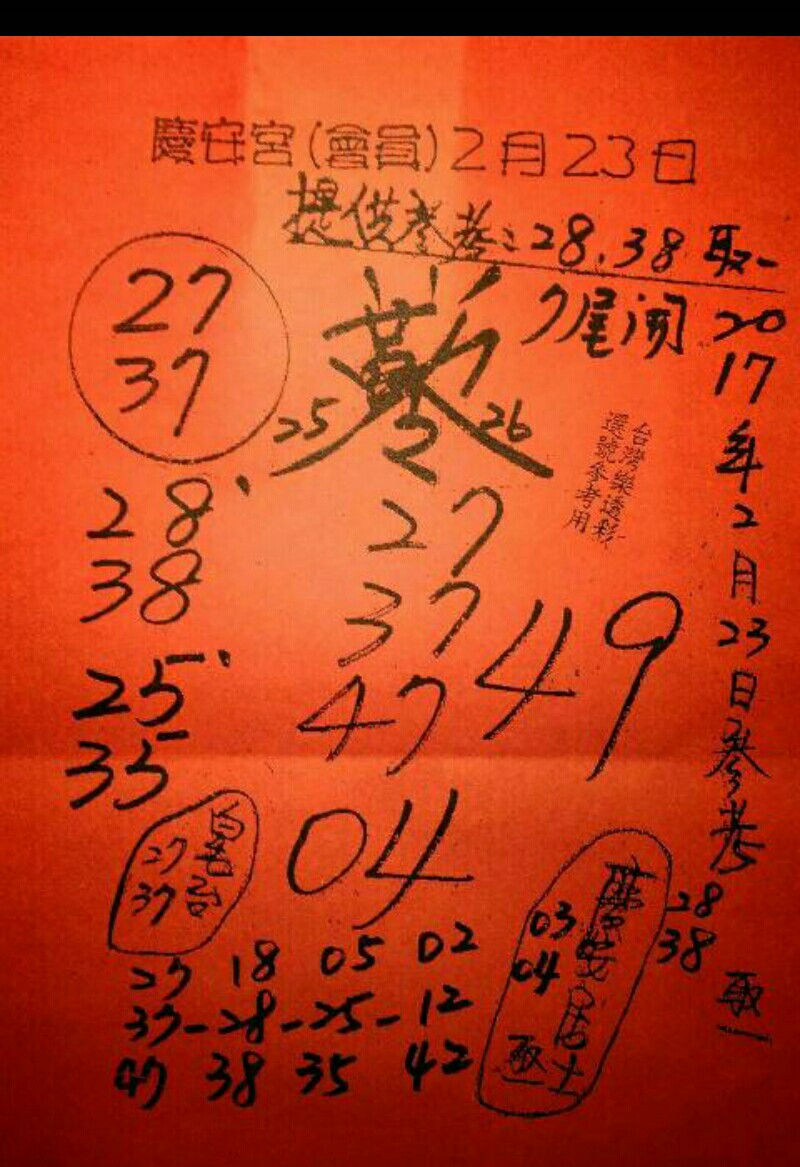 慶安宮(會員)2月23日
提供參考:28.38 取一
7尾開
27
37
25 26
台灣樂透彩
選號參考用
2017年2月23日參考
28
38
取一
28
38
25
35
27
37
47
49
04
27
37
03
04
取一
27 18 05 02
37-28-25-12
47 38 35 42